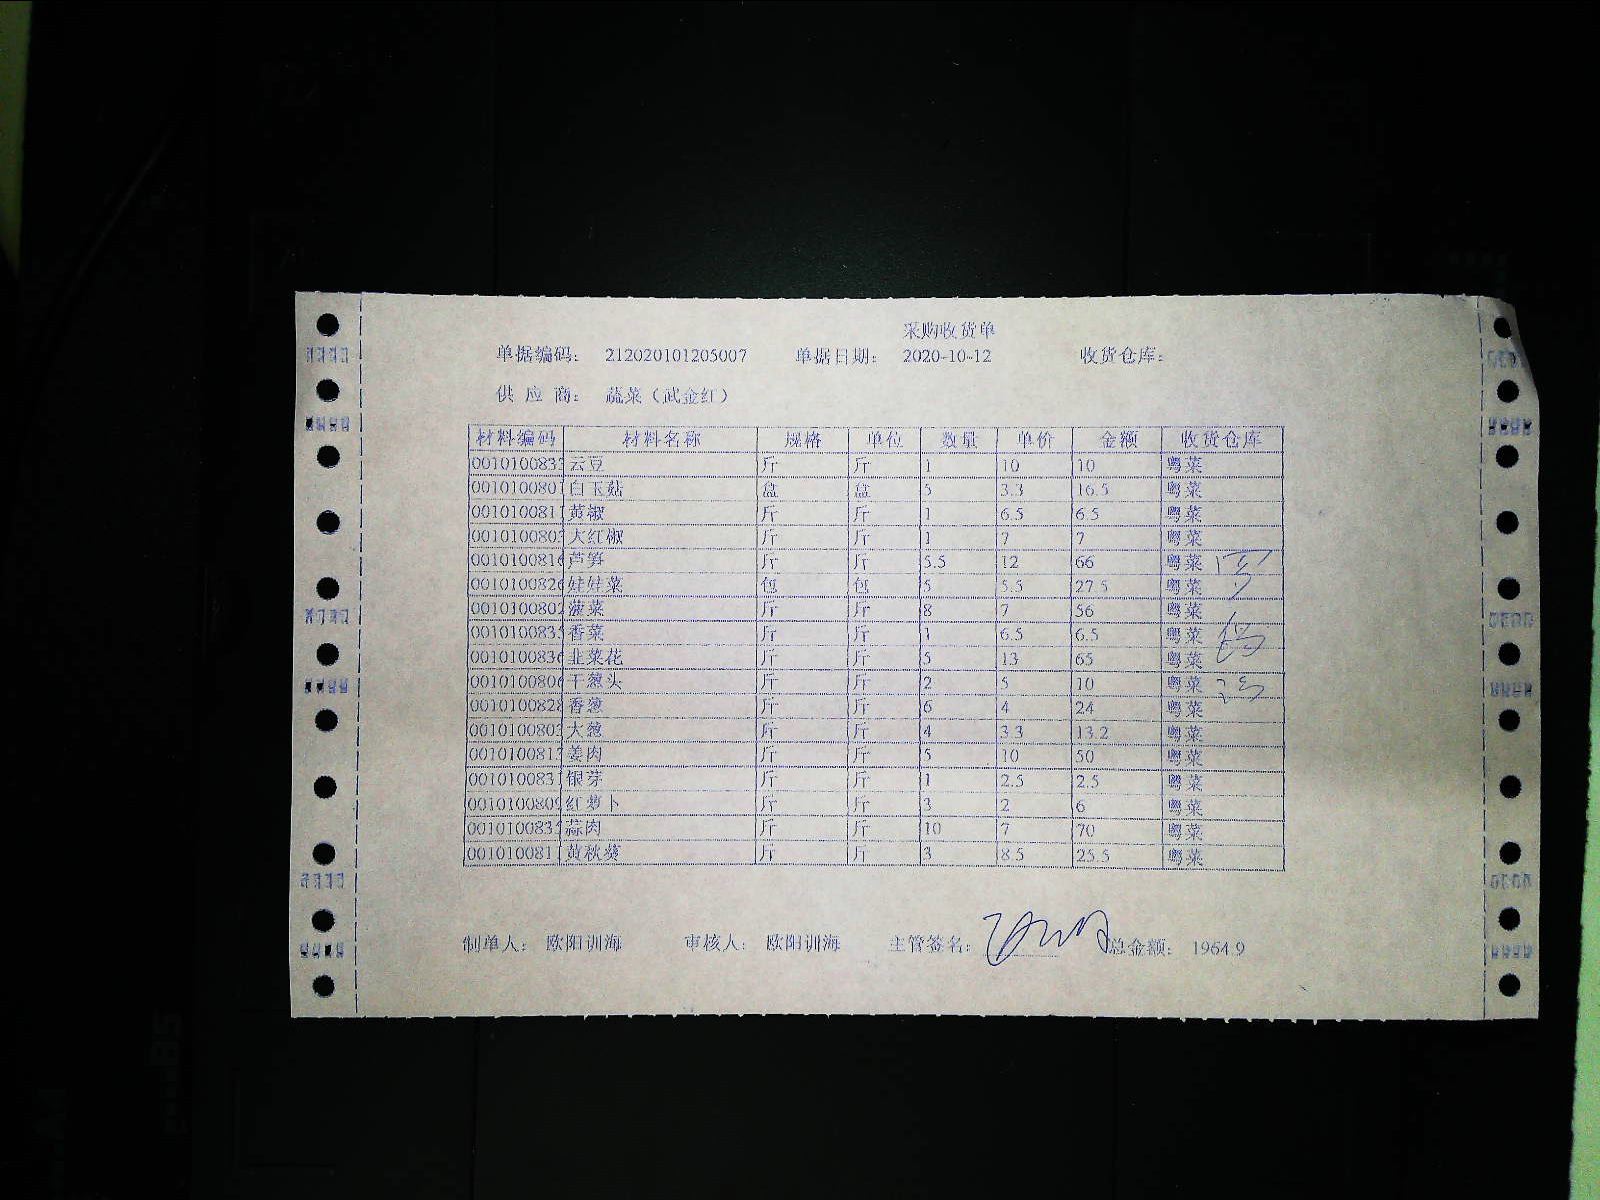 采购收货单
单据编码： 212020101205007 单据日期： 2020-10-12 收货仓库：
供 应 商： 蔬菜（武金红）
材料编码 材料名称 规格 单位 数量 单价 金额 收货仓库
0010100833 云豆 斤 斤 1 10 10 粤菜
0010100801 白玉菇 盒 盒 5 3.3 16.5 粤菜
001010081 黄椒 斤 斤 1 6.5 6.5 粤菜
0010100805 大红椒 斤 斤 1 7 7 粤菜
0010100816 芦笋 斤 斤 5.5 12 66 粤菜
0010100826 娃娃菜 包 包 5 5.5 27.5 粤菜
0010100802 菠菜 斤 斤 8 7 56 粤菜
0010100835 香菜 斤 斤 1 6.5 6.5 粤菜
0010100836 韭菜花 斤 斤 5 13 65 粤菜
0010100806 干葱头 斤 斤 2 5 10 粤菜
0010100828 香葱 斤 斤 6 4 24 粤菜
0010100803 大葱 斤 斤 4 3.3 13.2 粤菜
0010100813 姜肉 斤 斤 5 10 50 粤菜
0010100831 银芽 斤 斤 1 2.5 2.5 粤菜
0010100809 红萝卜 斤 斤 3 2 6 粤菜
0010100835 蒜肉 斤 斤 10 7 70 粤菜
001010081 黄秋葵 斤 斤 3 8.5 25.5 粤菜
制单人： 欧阳训海 审核人： 欧阳训海 主管签名： 总金额： 1964.9